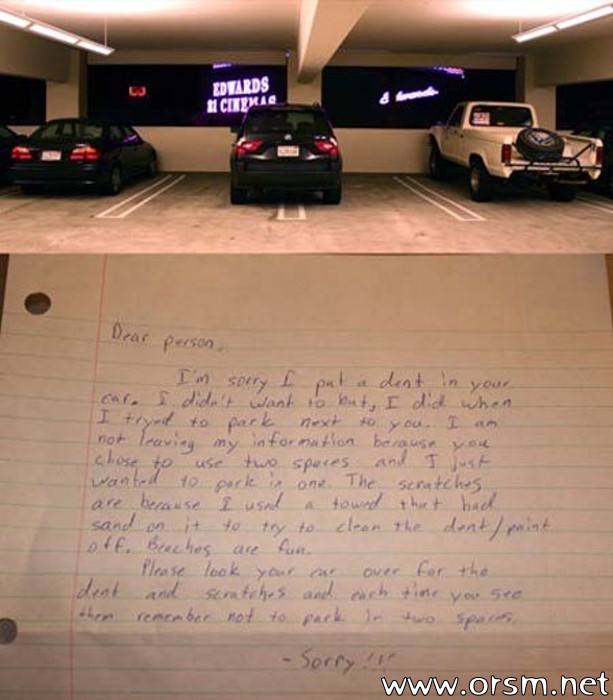 EDWARDS
21 CINEMAS
Dear person,
I'm sorry I put a dent in your
car. I didn't want to but, I did when
I tryed to park next to you. I am
not leaving my information because you
chose to use two spaces and I just
wanted to park in one. The scratches
are because I used a towel that had
sand on it to try to clean the dent/paint
off. Beaches are fun.
Please look your car over for the
dent and scratches and each time you see
them remember not to park in two spaces.
-Sorry!!!
www.orsm.net